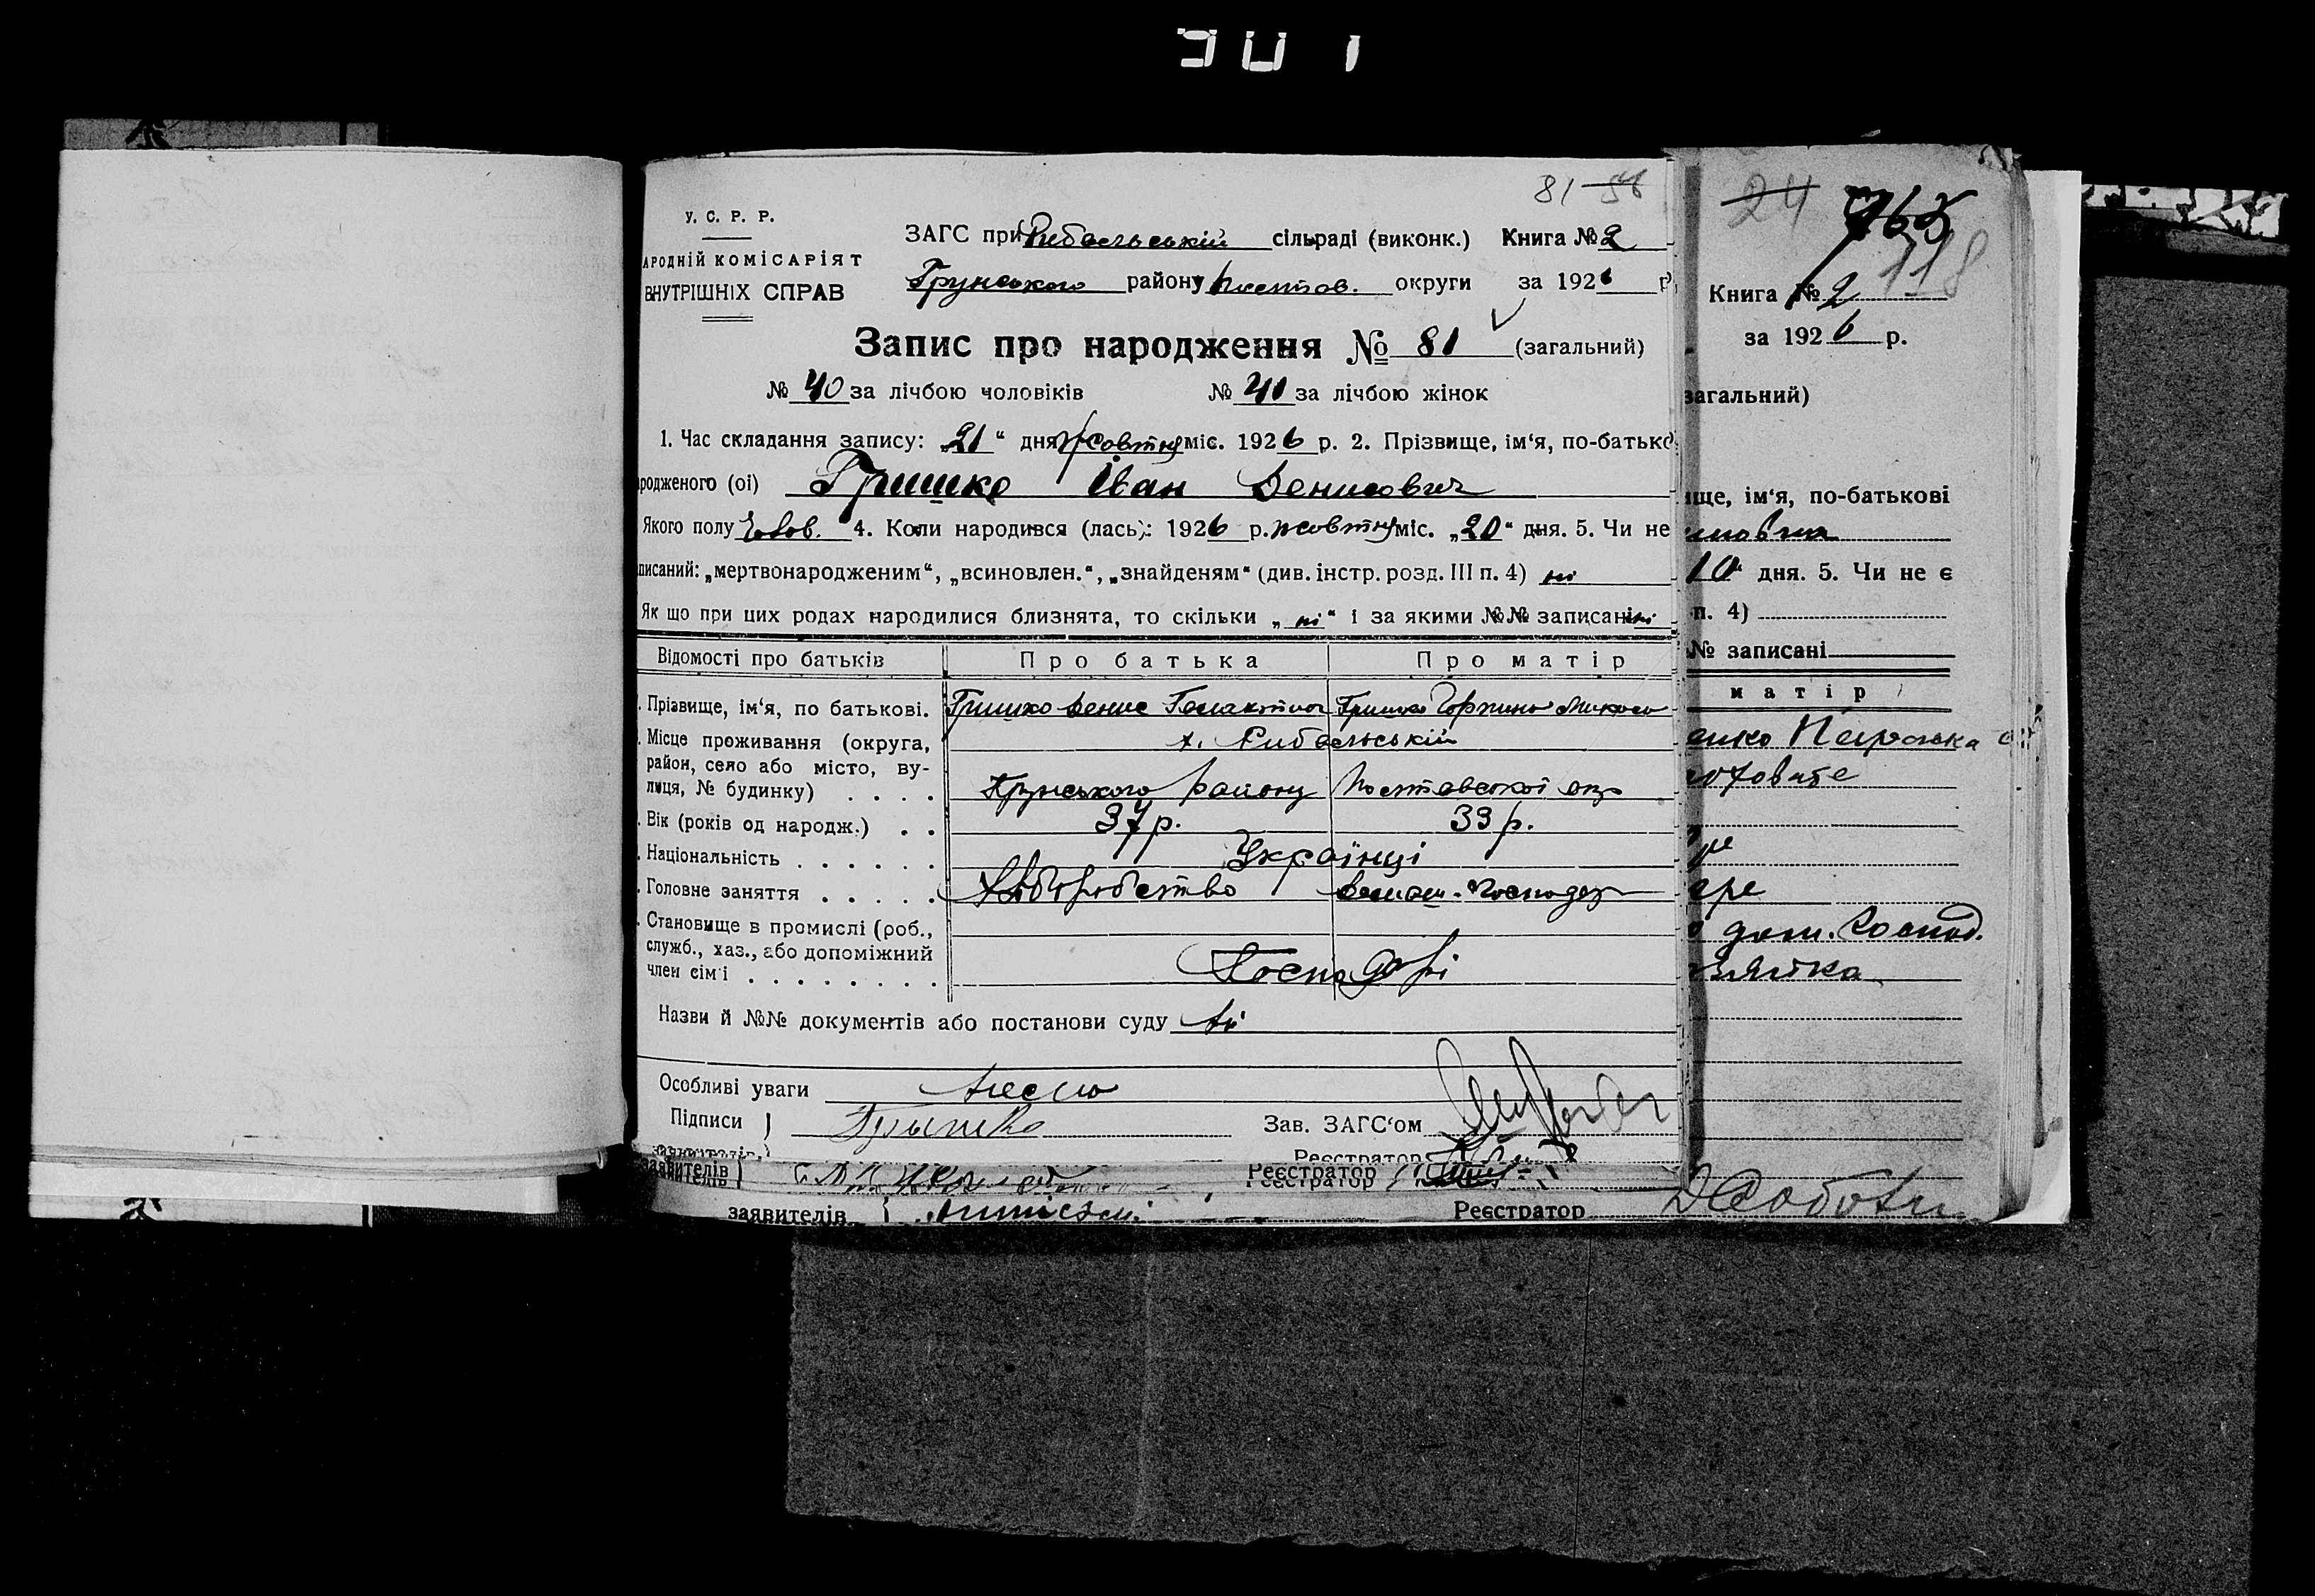 81 56
У. С. Р. Р.
АРОДНІЙ КОМІСАРІЯТ
ВНУТРІШНІХ СПРАВ
ЗАГС при Рибальській сільраді (виконк.) Книга № 2
Грунського району Полтав. округи за 1926 р
Запис про народження № 81 (загальний)
№ 40 за лічбою чоловіків № 41 за лічбою жінок
1. Час складання запису: „21“ дня Жовтня міс. 1926 р. 2. Прізвище, ім‘я, по-батько
родженого (ої) Гришко Іван Денисович
Якого полу Чолов. 4. Коли народився (лась): 1926 р. жовтня міс. „20“ дня. 5. Чи не
писаний: „мертвонародженим“, „всиновлен.“, „знайденям“ (див. інстр. розд. III п. 4) ні
Як що при цих родах народилися близнята, то скільки „ні“ і за якими №№ записані ні
Відомості про батьків Про батька Про матір
Прізвище, ім‘я, по батькові. Гришко Денис Гришко Горпина
Місце проживання (округа, х. Рибальській
район, село або місто, ву-
лиця, № будинку) . . . . Грунського району Полтавської окр
Вік (років од народж.) . . 37 р. 33 р.
Національність . . . . . . Українці
Головне заняття . . . . . Хліборобство домаш. господар
Становище в промислі (роб.,
служб., хаз., або допоміжний
член сім‘ї . . . . . . . . Господарі
Назви й №№ документів або постанови суду ні
Особливі уваги
Підписи ) Гришко Зав. ЗАГС‘ом
Реєстратор
заявителів Реєстратор
заявителів Реєстратор
24 765
118
Книга № 2
за 1926 р.
загальний)
ище, ім‘я, по-батькові
10 дня. 5. Чи не є
п. 4)
№ записані
матір
дом. господ.